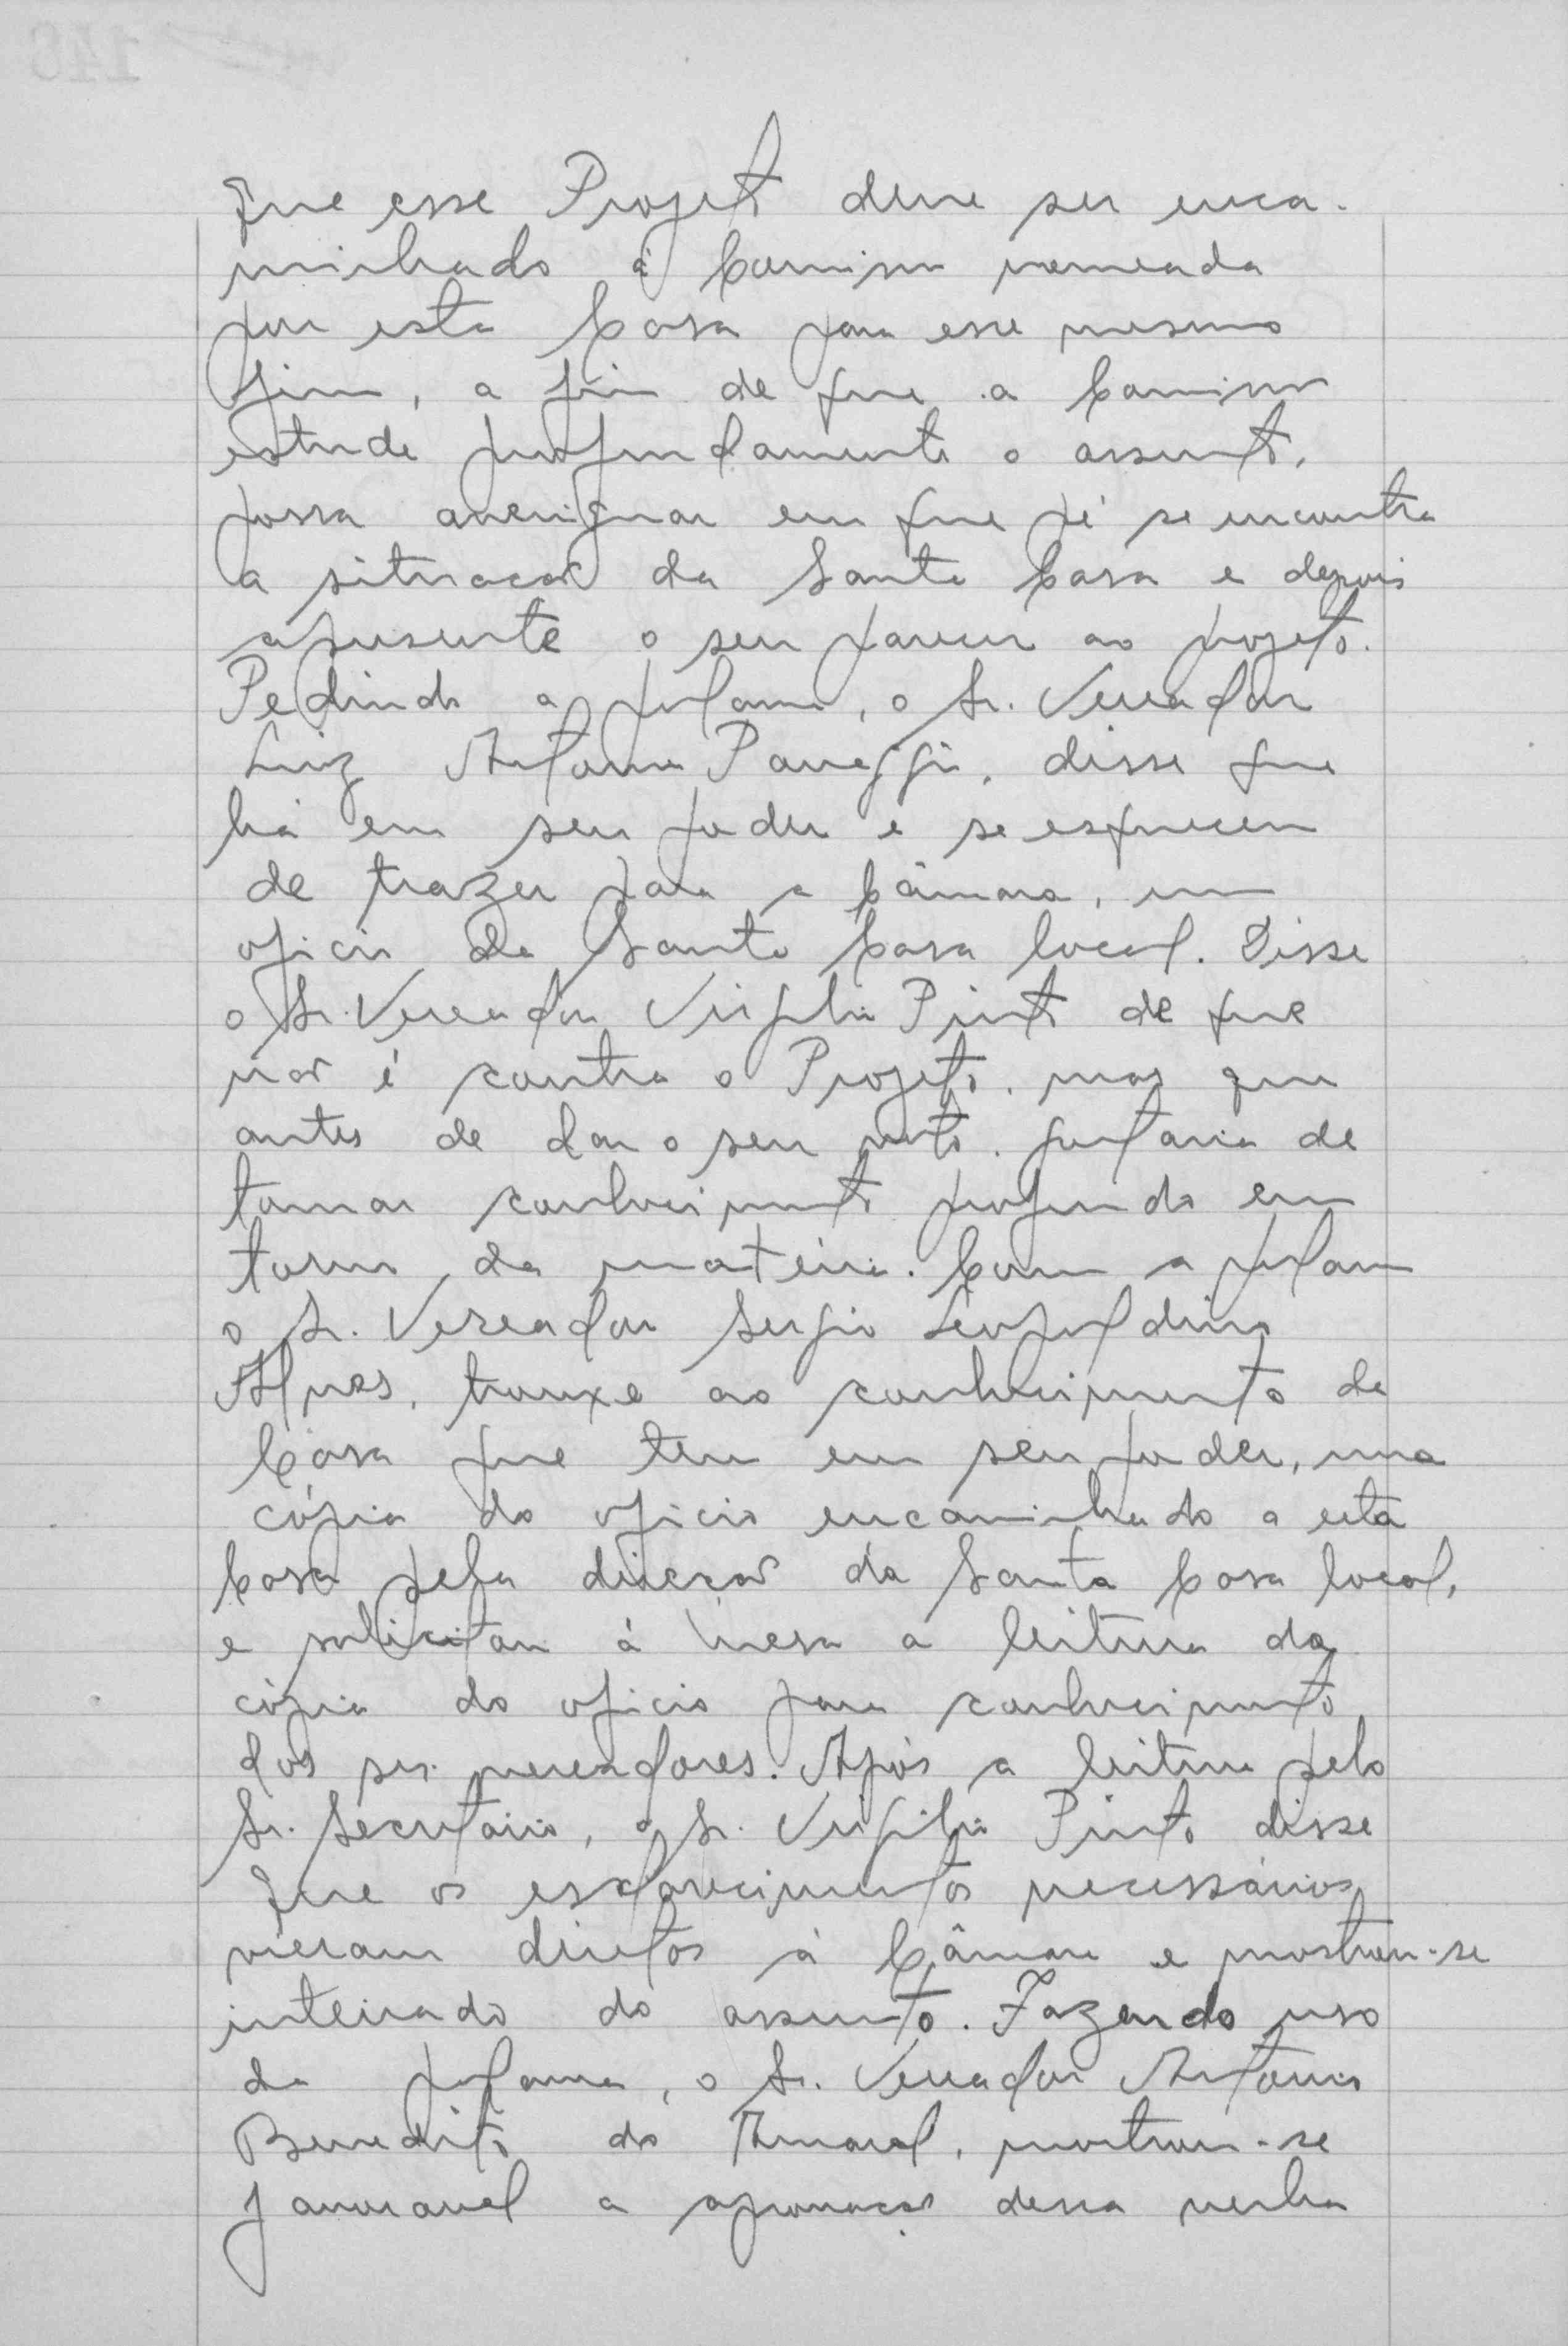 que esse Projeto deve ser enca-
minhado à Comissão nomeada
por esta Casa para esse mesmo
fim, a fim de que a Comissão
estude profundamente o assunto,
possa averiguar em que pé se encontra
a situação da Santa Casa e depois
apresente o seu parecer ao projeto.
Pedindo a palavra, o Sr. Vereador
Luiz Antonio disse que
há em seu poder e se esqueceu
de trazer para a Câmara, um
oficio da Santa Casa local. Disse
o Sr. Vereador Virgilio Pinto de que
não é contra o Projeto, mas que
antes de dar o seu voto, gostaria de
tomar conhecimento profundo em
torno da matéria. Com a palavra
o Sr. Vereador Sergio Leopoldino
Alves, trouxe ao conhecimento da
Casa que tem em seu poder, uma
cópia do oficio encaminhado a esta
Casa pela direção da Santa Casa local,
e solicitou à mesa a leitura da
cópia do oficio para conhecimento
dos srs. vereadores. Após a leitura pelo
Sr. Secretário, o Sr. Virgilio Pinto disse
que os esclarecimentos necessários
vieram diretos à Câmara e mostrou-se
inteirado do assunto. Fazendo uso
da palavra, o Sr. Vereador Antonio
Benedito do Amaral, mostrou-se
favoravel a aprovação dessa verba